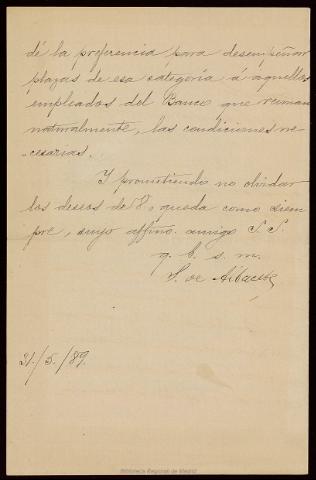 dé la preferencia para desempeñar
plazas de esa categoría á aquellos
empleados del Banco que reunan
naturalmente, las condiciones ne-
-cesarias.
Y prometiendo no olvidar
los deseos de V, queda como siem
pre, suyo affmo. amigo S. S.
q. b. s. m.
S. de Albacete
21/5/89.
Biblioteca Regional de Madrid